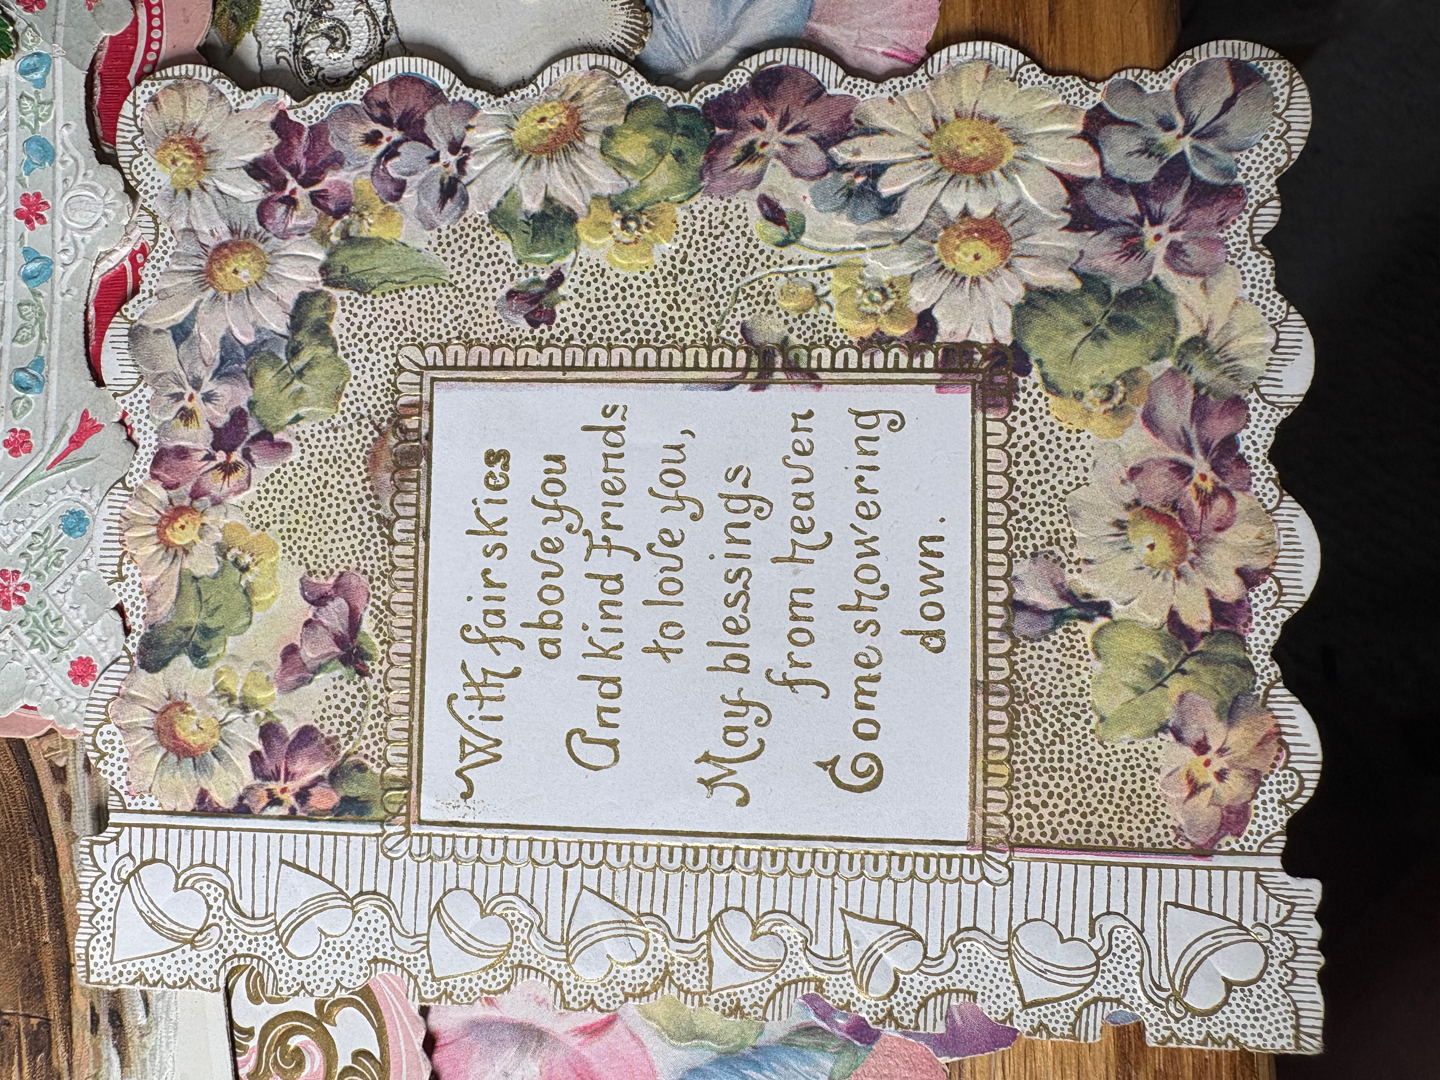 With fair skies
above you
And kind Friends
to love you,
May blessings
from heaven
Come showering
down.